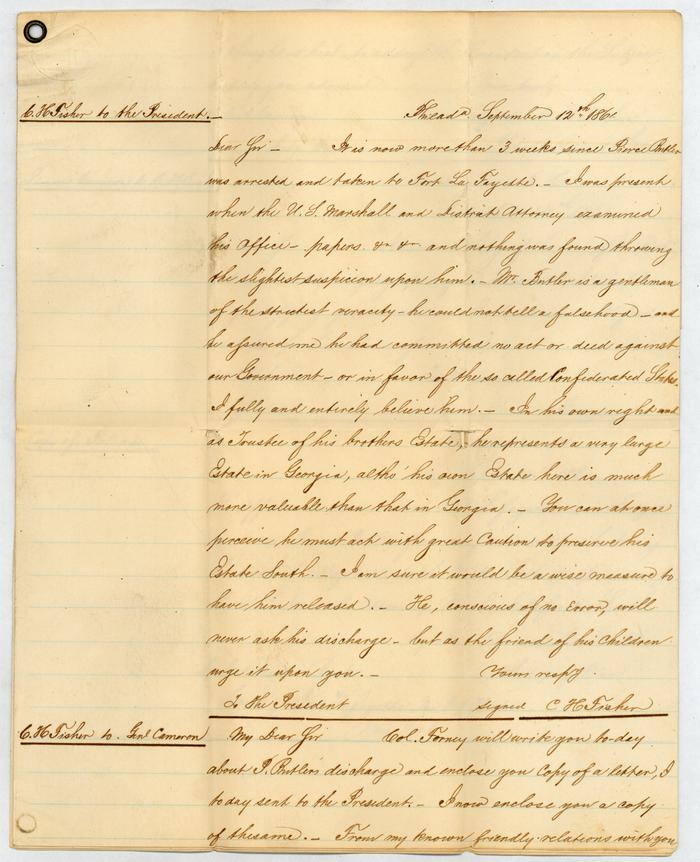 C. H Fisher to the President.—
Philada September 12th 186
Dear Sir — It is now more than 3 weeks since Pierce Butler
was arrested and taken to Fort La Fayette. — I was present
when the U. S. Marshall and District Attorney examined
his Office — papers &c &c — and nothing was found throwing
the slightest suspicion upon him. — Mr. Butler is a gentleman
of the strictest veracity — he could not tell a falsehood — and
he assured me he had committed no act or deed against
our Government — or in favor of the so called Confederated States.
I fully and entirely believe him. — In his own right and
as Trustee of his brothers Estate, he represents a very large
Estate in Georgia, altho' his own Estate here is much
more valuable than that in Georgia. — You can at once
perceive he must act with great Caution to preserve his
Estate South. — I am sure it would be a wise measure to
have him released. — He, conscious of no Error, will
never ask his discharge — but as the friend of his Children
urge it upon you. — Yours respy.
To the President signed C H Fisher
C. H Fisher to Genl Cameron
My Dear Sir Col. Forney will write you to-day
about P. Butlers discharge and enclose you Copy of a letter, I
to day sent to the President. — I now enclose you a copy
of the same. — From my known friendly relations with you